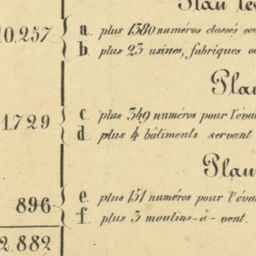 Plan
10.257
a. plus 1380 numéros classés
b. plus 23 usines, fabriques
Plan
1.729
c. plus 349 numéros pour l'éva
d. plus 4 bâtiments servent
Plan
896
e. plus 151 numéros pour l'éva
f. plus 3 moulins-à-vent.
2.882